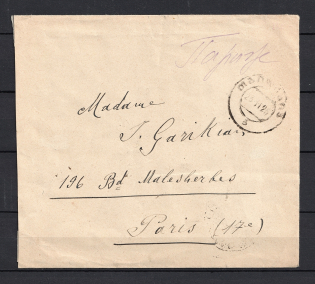 Парижъ
Madame
J. Garikian
196 Bd Malesherbes
Paris (17e)